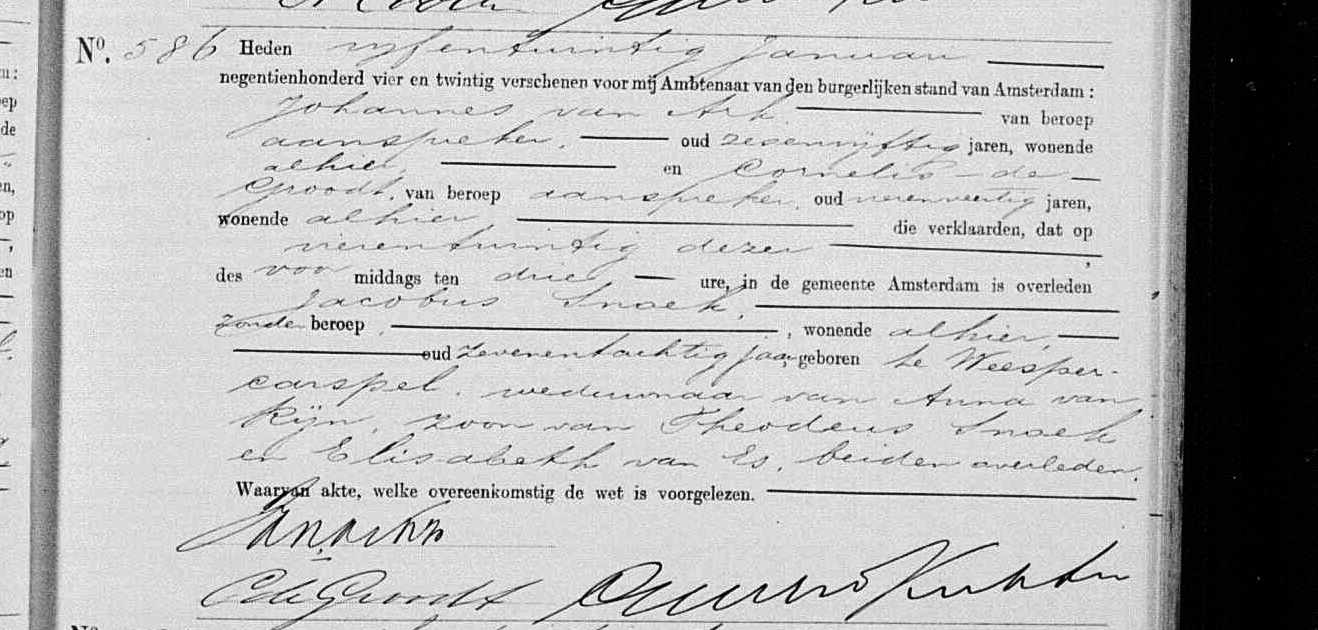 No. 586 Heden vijfentwintig Januari
negentienhonderd vier en twintig verschenen voor mij Ambtenaar van den burgerlijken stand van Amsterdam :
Johannes van Ark van beroep
aanspreker, oud zevenvijftig jaren, wonende
alhier en Cornelis de
Groodt, van beroep aanspreker, oud vierenveertig jaren,
wonende alhier, die verklaarden, dat op
vierentwintig dezer ,
des voor middags ten drie ure, in de gemeente Amsterdam is overleden
Jacobus Snoek,
Zonder beroep, , wonende alhier,
oud zevenentachtig jaar, geboren te Weesper-
carspel, weduwnaar van Anna van
Rijn, zoon van Theodeus Snoek
en Elisabeth van Es, beiden overleden.
Waarvan akte, welke overeenkomstig de wet is voorgelezen.
C de Groodt